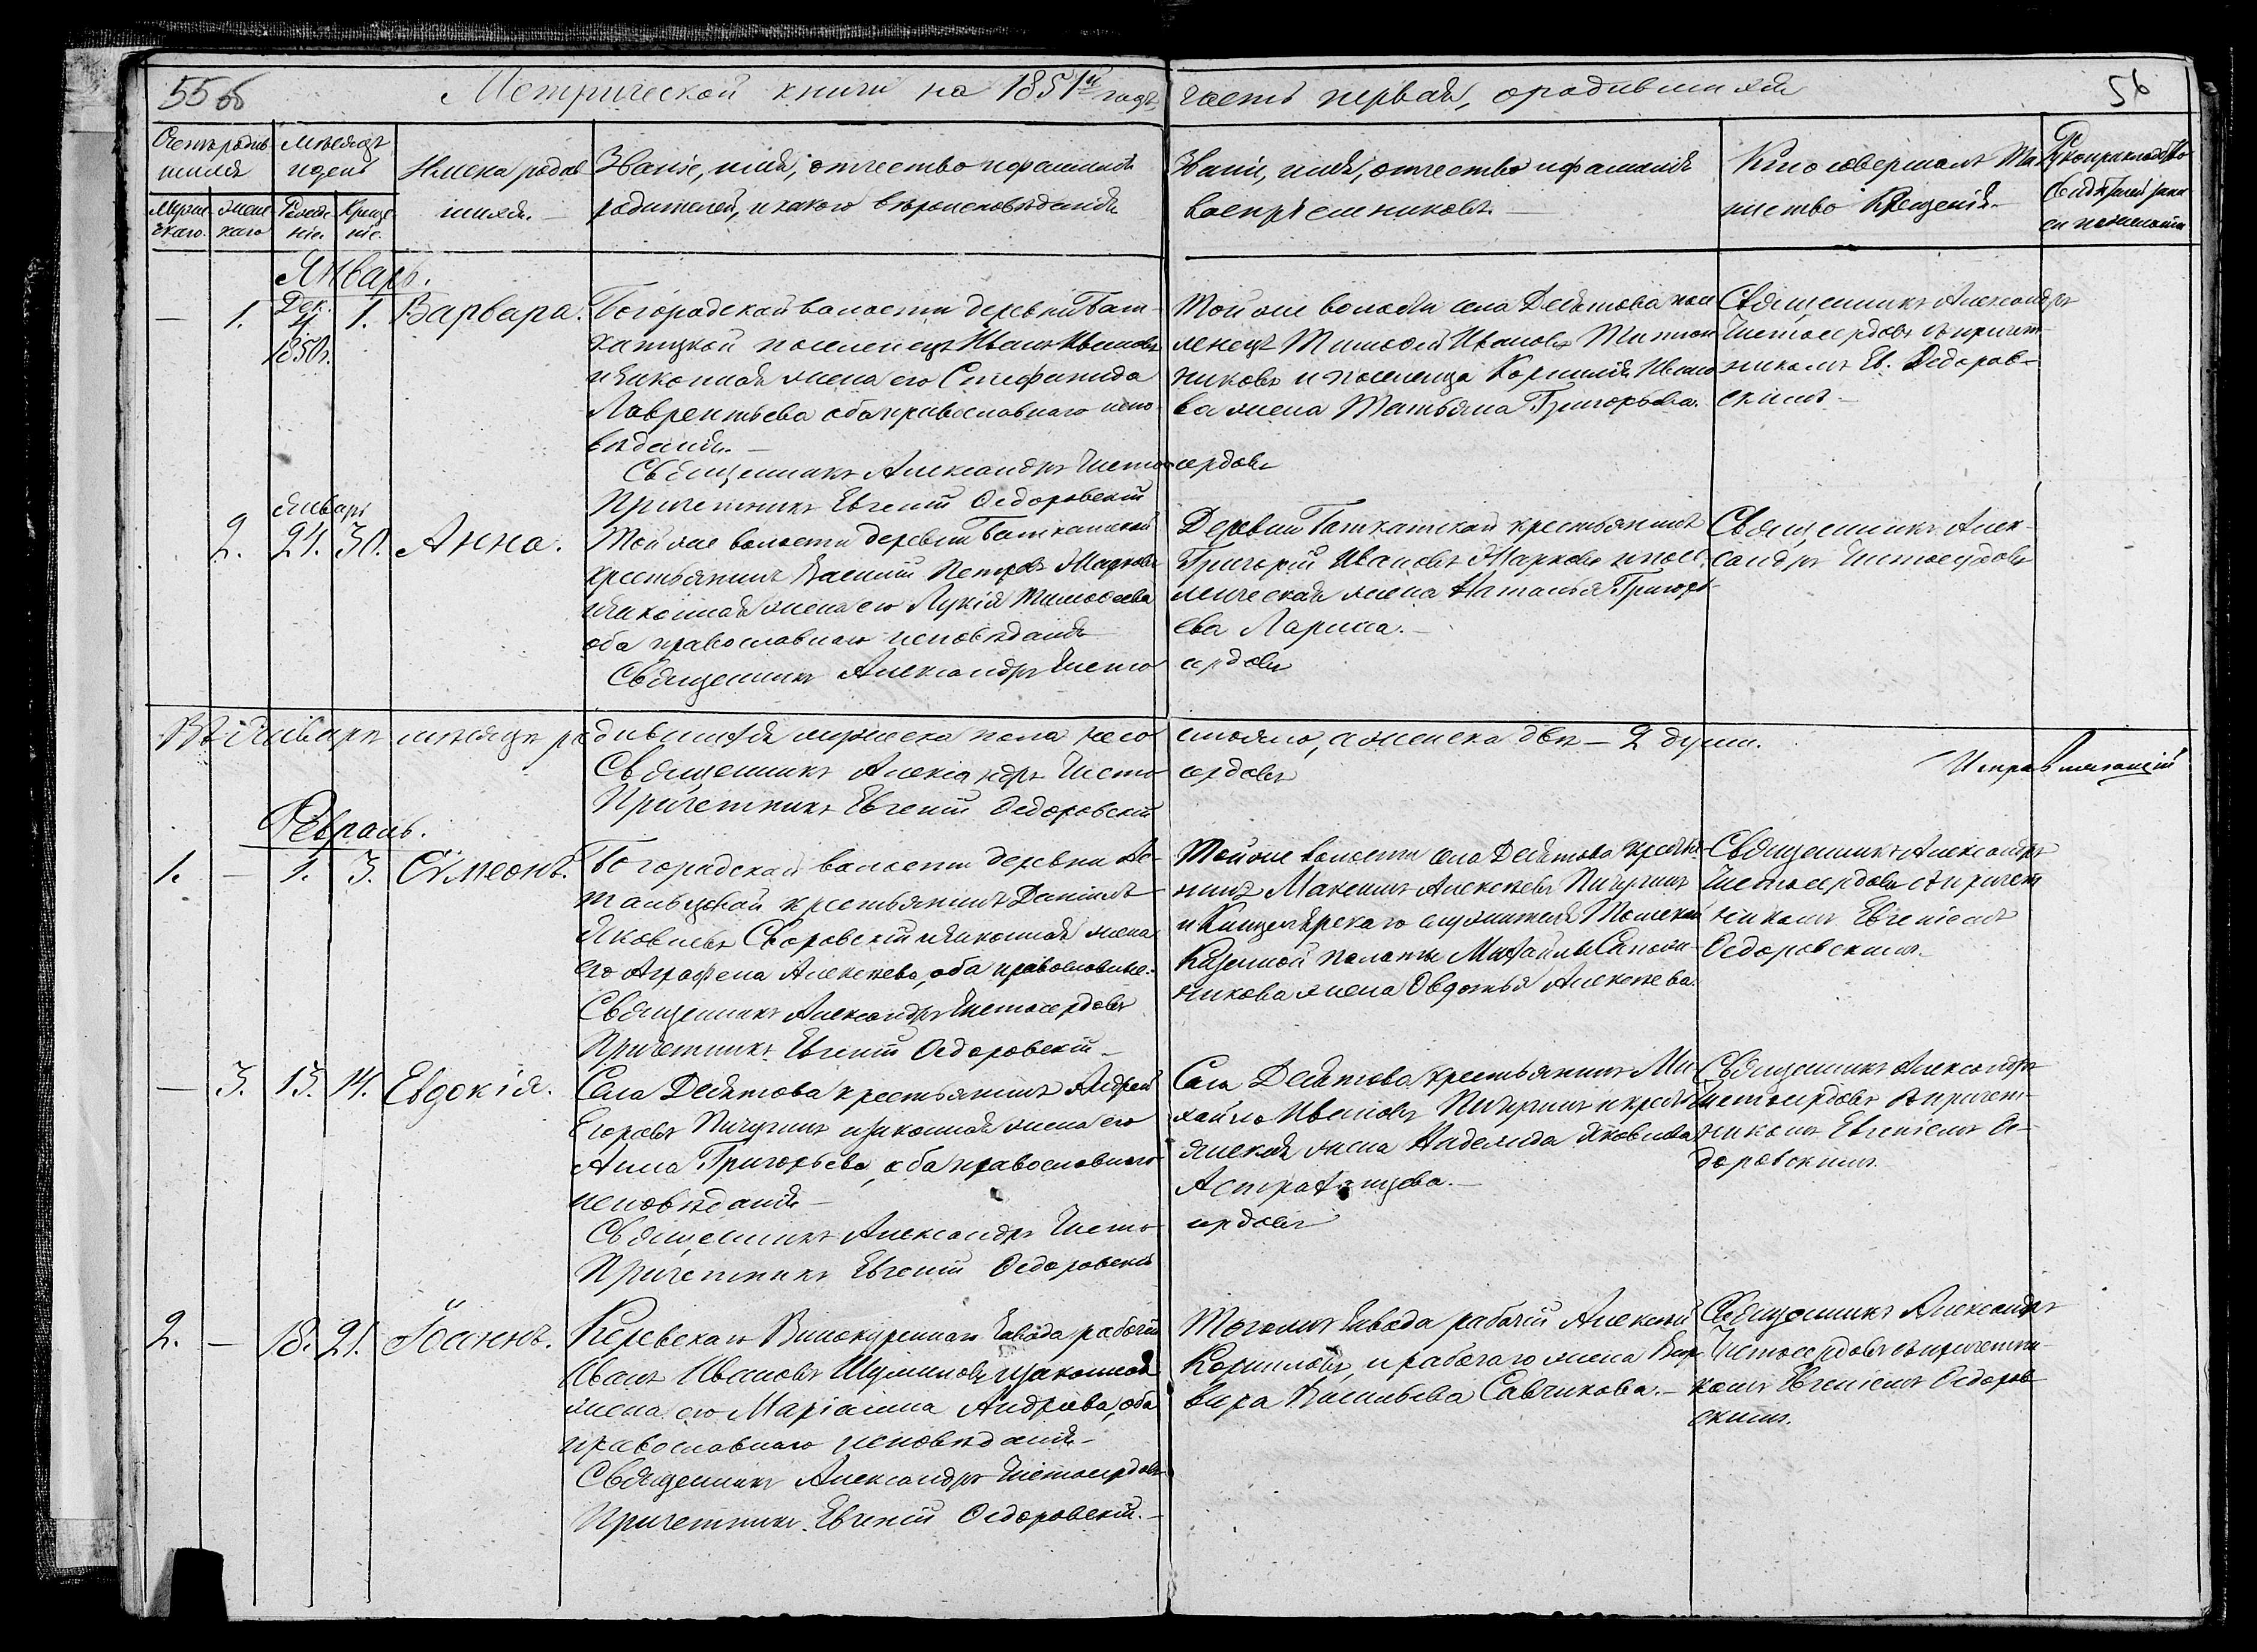 55 об
Метрической книги на 1851й годъ, часть первая, о родившихся
56
Счетъ родив
шихся
Мужес
каго.
Женс
каго
Мѣсяцъ
и день
Рожде
ніе.
Креще
ніе.
Имена родив
шихся.
Званіе, имя, отчество и фамилія
родителей, и какого вѣроисповѣданія
Званіе, имя, отчество и фамилія
воспріемниковъ.
Кто совершалъ Та
инство Крещенія.
Рукоприкладство
свидѣтелей запи
си по желанію
Январь.
— 1. Дек. 4 1850г. 1. Варвара.
Богородской волости деревни Баткатской поселенецъ Иванъ Ивановъ
и законная жена его Степанида
Лаврентьева оба православнаго испо
вѣданія.
Священникъ Александръ Чистосердовъ
Причетникъ Евгеній Ѳедоровскій
Той же волости села Десятова посе
ленецъ Тимофей Ивановъ
и поселенца Корнилія Ивано
ва жена Татьяна Григорьева.
Священникъ Александръ
Чистосердовъ съ причет-
никомъ Ев. Ѳедоров-
скимъ
Январь
2. 21. 30. Анна.
Той же волости деревни Баткатской
крестьянинъ Василій Петровъ Жарковъ
и законная жена его Лукія Тимоѳеева
оба православнаго исповѣданія
Священникъ Александръ Чистосердовъ
Деревни Баткатской крестьянинъ
Григорій Ивановъ Жарковъ и посе
ленческая жена Наталья Григорь
ева Ларина.
Священникъ Алек-
сандръ Чистосердовъ
Въ Январѣ мѣсяцѣ родившихся мужеска пола не состояло, а женска двѣ — 2 души.
Священникъ Александръ Чистосердовъ
Причетникъ Евгеній Ѳедоровскій
Исправляющій
Февраль.
1. — 1. 3. Сѵмеонъ.
Богородской волости деревни Ас-
танцовой крестьянинъ Даніилъ
Яковлевъ Своровскій и законная жена
его Аграфена Алексѣева, оба православные.
Священникъ Александръ Чистосердовъ
Причетникъ Евгеній Ѳедоровскій
Той же волости села Десятова крестья
нинъ Максимъ Алексѣевъ Пичугинъ
и Канцелярскаго служителя Томской
Казенной палаты Михайлы Сапож-
никова жена Овдотья Алексѣева.
Священникъ Александръ
Чистосердовъ съ причет
никомъ Евгеніемъ
Ѳедоровскимъ.
— 3. 13. 14. Евдокія.
Села Десятова крестьянинъ Андрей
Егоровъ Пичугинъ и законная жена его
Анна Григорьева, оба православнаго
исповѣданія
Священникъ Александръ Чистосердовъ
Причетникъ Евгеній Ѳедоровскій
Села Десятова крестьянинъ Ми
хайло Ивановъ Пичугинъ и кресть
янская жена Надежда Яковлева
Астраханцева.
Священникъ Александръ
Чистосердовъ съ причет-
никомъ Евгеніемъ Ѳе-
доровскимъ.
2. — 18. 21. Іоаннъ.
Керевскаго Винокуреннаго Завода рабочій
Иванъ Ивановъ Шуминовъ и законная
жена его Маріанна Андреева, оба
православнаго исповѣданія
Священникъ Александръ Чистосердовъ
Причетникъ Евгеній Ѳедоровскій.
Того же Завода рабочій Алексѣй
Корниловъ, и рабочаго жена
Васильева Савчикова.
Священникъ Александръ
Чистосердовъ съ причетни-
комъ Евгеніемъ Ѳедоров
скимъ.